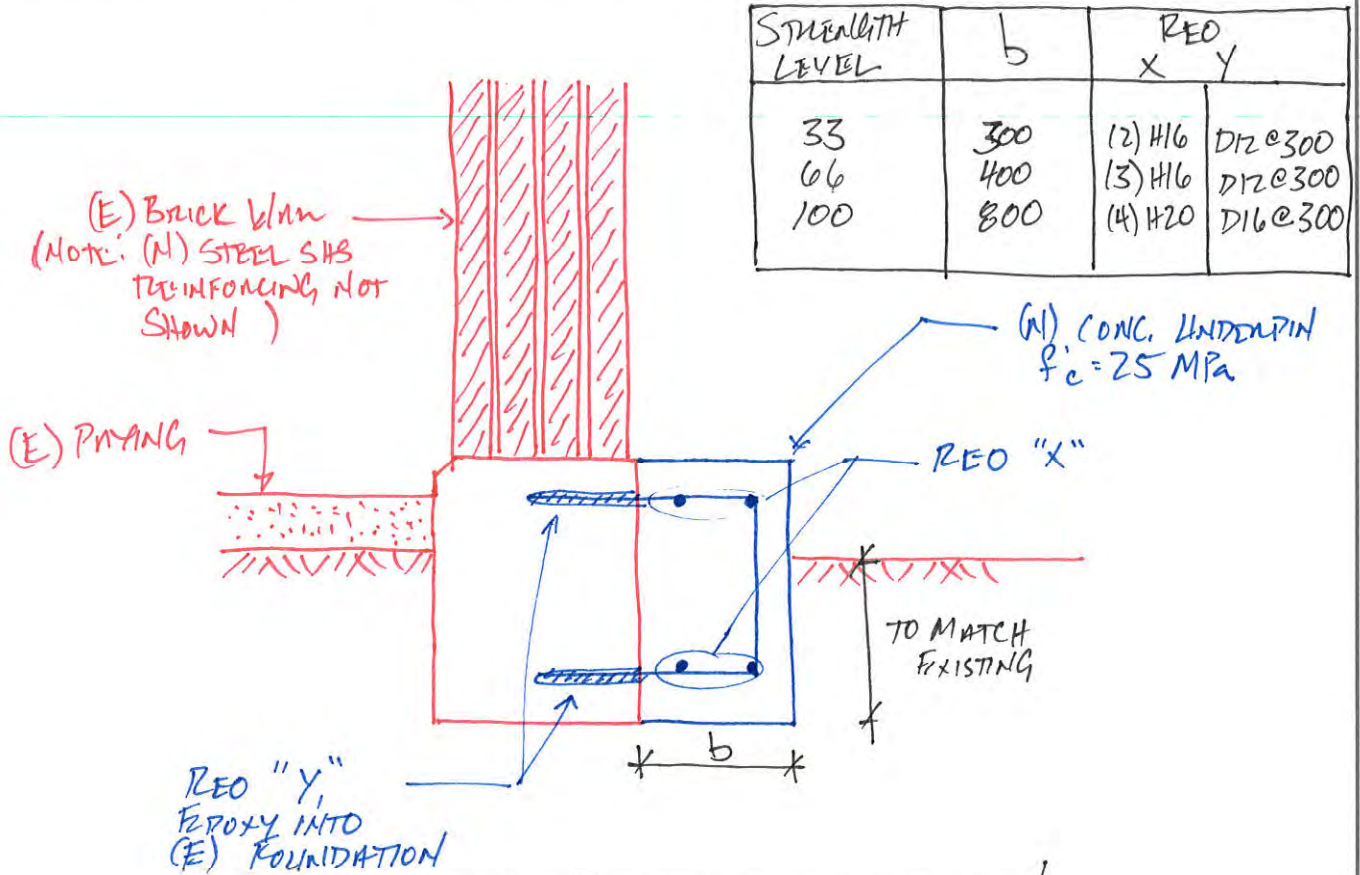 STRENGTH LEVEL | b | REO X Y
33 | 300 | (2) H16 | D12@300
66 | 400 | (3) H16 | D12@300
100 | 800 | (4) H20 | D16@300
(E) BRICK WALL
(NOTE: (N) STEEL SHS
REINFORCING NOT
SHOWN)
(N) CONC. UNDERPIN
f'c = 25 MPa
(E) PAVING
REO "X"
TO MATCH
EXISTING
b
REO "Y",
EPOXY INTO
(E) FOUNDATION